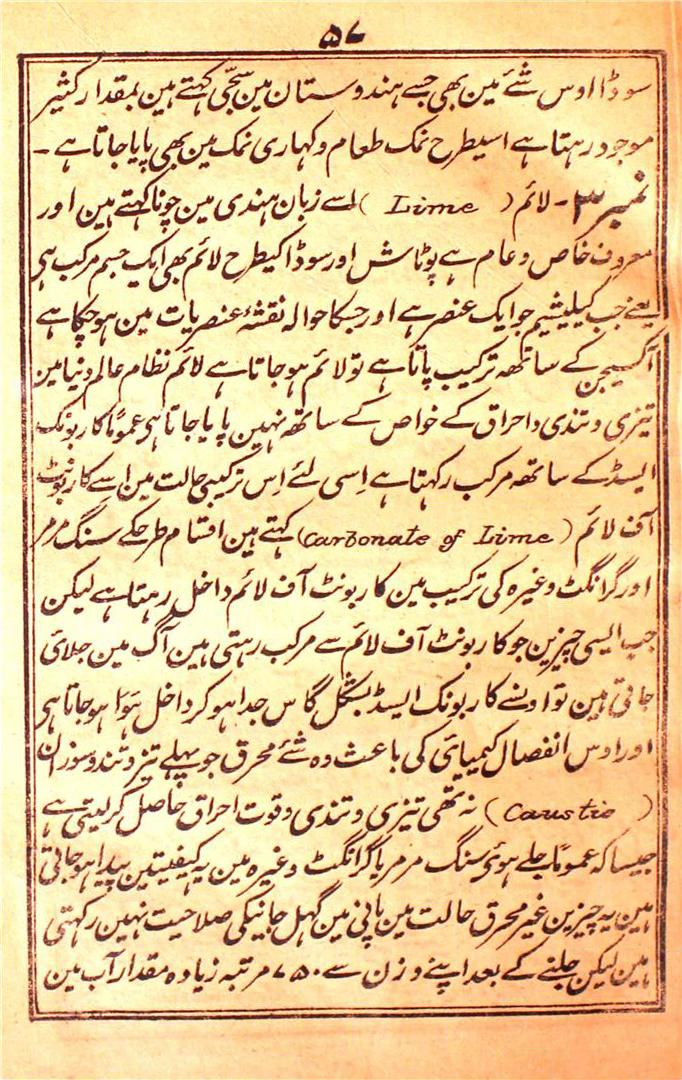 ۵۷
سوڈا اوس شئے مین بھی جسے ہندوستان مین سجّی کہتے ہین بمقدار کثیر
موجود رہتا ہے اسیطرح نمک طعام و کہاری نمک مین بھی پایا جاتا ہے -
نمبر ۳ - لائم ( Lime ) اسے زبان ہندی مین چونا کہتے ہین اور
معروف خاص و عام ہے پوٹاش اور سوڈا کیطرح لائم بھی ایک جسم مرکب ہی
یعنے جب کیلیشیم جو ایک عنصر ہے اور جسکا حوالہ نقشۂ عنصریات مین ہو چکا ہے
آکسیجن کے ساتھہ ترکیب پاتا ہے تو لائم ہو جاتا ہے لائم نظام عالم دنیا مین
تیزی و تندی و احراق کے خواص کے ساتھ نہین پایا جاتا ہی عمومًا کاربونک
ایسڈ کے ساتھہ مرکب رکہتا ہے اِسی لئے اِس ترکیبی حالت مین اسے کاربونٹ
آف لائم ( Carbonate of Lime ) کہتے ہین اقسام طرحکے سنگ مرمر
اور گرانگٹ وغیرہ کی ترکیب مین کاربونٹ آف لائم داخل رہتا ہے لیکن
جب ایسی چیزین جو کاربونٹ آف لائم سے مرکب رہتی ہین آگ مین جلائی
جاتی ہین تو اونسے کاربونک ایسڈ بشکل گاس جدا ہو کر داخل ہوَا ہو جاتا ہی
اور اوس انفصال کیمیائی کی باعث وہ شئے محرق جو پہلے تیز و تند و سوزان
( Caustic ) نہ تھی تیزی و تندی و قوت احراق حاصل کر لیتی ہے
جیسا کہ عمومًا جلے ہوئی سنگ مرمر یا گرانگٹ وغیرہ مین یہ کیفیتین پیدا ہو جاتی
ہین یہ چیزین غیر محرق حالت مین پانی مین گہل جانیکی صلاحیت نہین رکہتی
ہین لیکن جلنے کے بعد اپنے وزن سے ۷۵۰ مرتبہ زیادہ مقدار آب مین